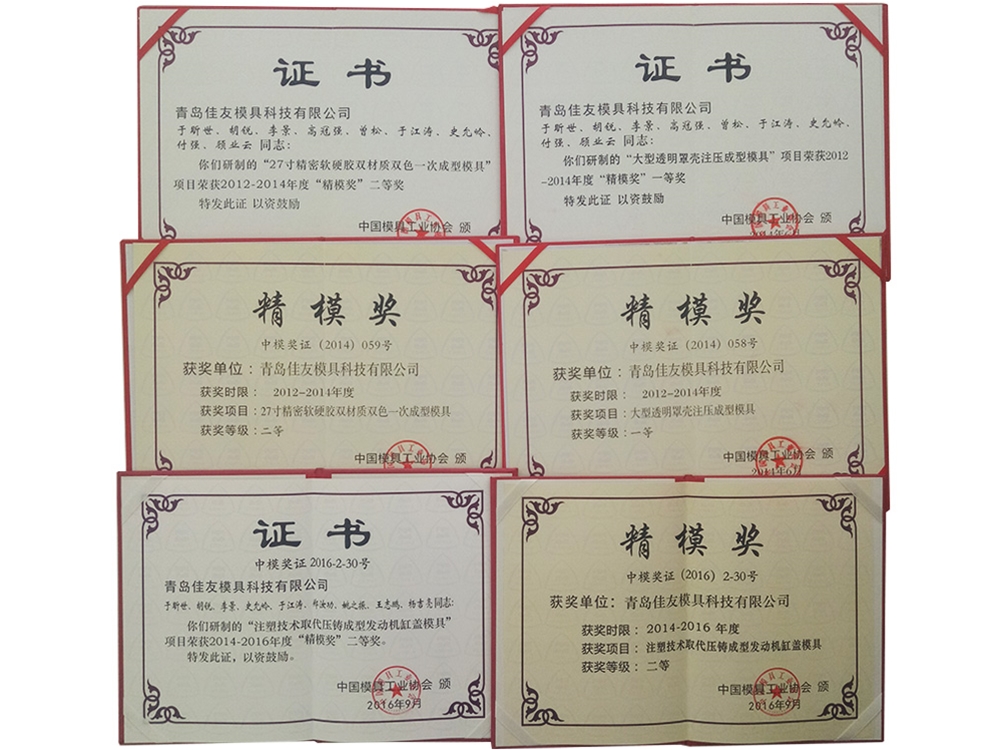 证 书
青岛佳友模具科技有限公司
于昕世、胡锐、李景、高冠强、曾松、于江涛、史允岭、
付强、顾业云 同志：
你们研制的“27寸精密软硬胶双材质双色一次成型模具”
项目荣获2012-2014年度“精模奖”二等奖
特发此证 以资鼓励
中国模具工业协会 颁
证 书
青岛佳友模具科技有限公司
于昕世、胡锐、李景、高冠强、曾松、于江涛、史允岭、
付强、顾业云 同志：
你们研制的“大型透明罩壳注压成型模具”项目荣获2012
-2014年度“精模奖”一等奖
特发此证 以资鼓励
中国模具工业协会 颁
2014年6月
精 模 奖
中模奖证（2014）059号
获奖单位：青岛佳友模具科技有限公司
获奖时限： 2012-2014年度
获奖项目：27寸精密软硬胶双材质双色一次成型模具
获奖等级：二等
中国模具工业协会 颁
精 模 奖
中模奖证（2014）058号
获奖单位：青岛佳友模具科技有限公司
获奖时限： 2012-2014年度
获奖项目：大型透明罩壳注压成型模具
获奖等级：一等
中国模具工业协会 颁
2014年6月
证 书
中模奖证 2016-2-30号
青岛佳友模具科技有限公司
于昕世、胡锐、李景、史允岭、于江涛、姚之振、王志鹏、杨吉亮同志：
你们研制的“注塑技术取代压铸成型发动机缸盖模具”
项目荣获2014-2016年度“精模奖”二等奖。
特发此证，以资鼓励。
中国模具工业协会 颁
2016年9月
精 模 奖
中模奖证（2016）2-30号
获奖单位：青岛佳友模具科技有限公司
获奖时限：2014-2016 年度
获奖项目：注塑技术取代压铸成型发动机缸盖模具
获奖等级：二等
中国模具工业协会 颁
2016年9月